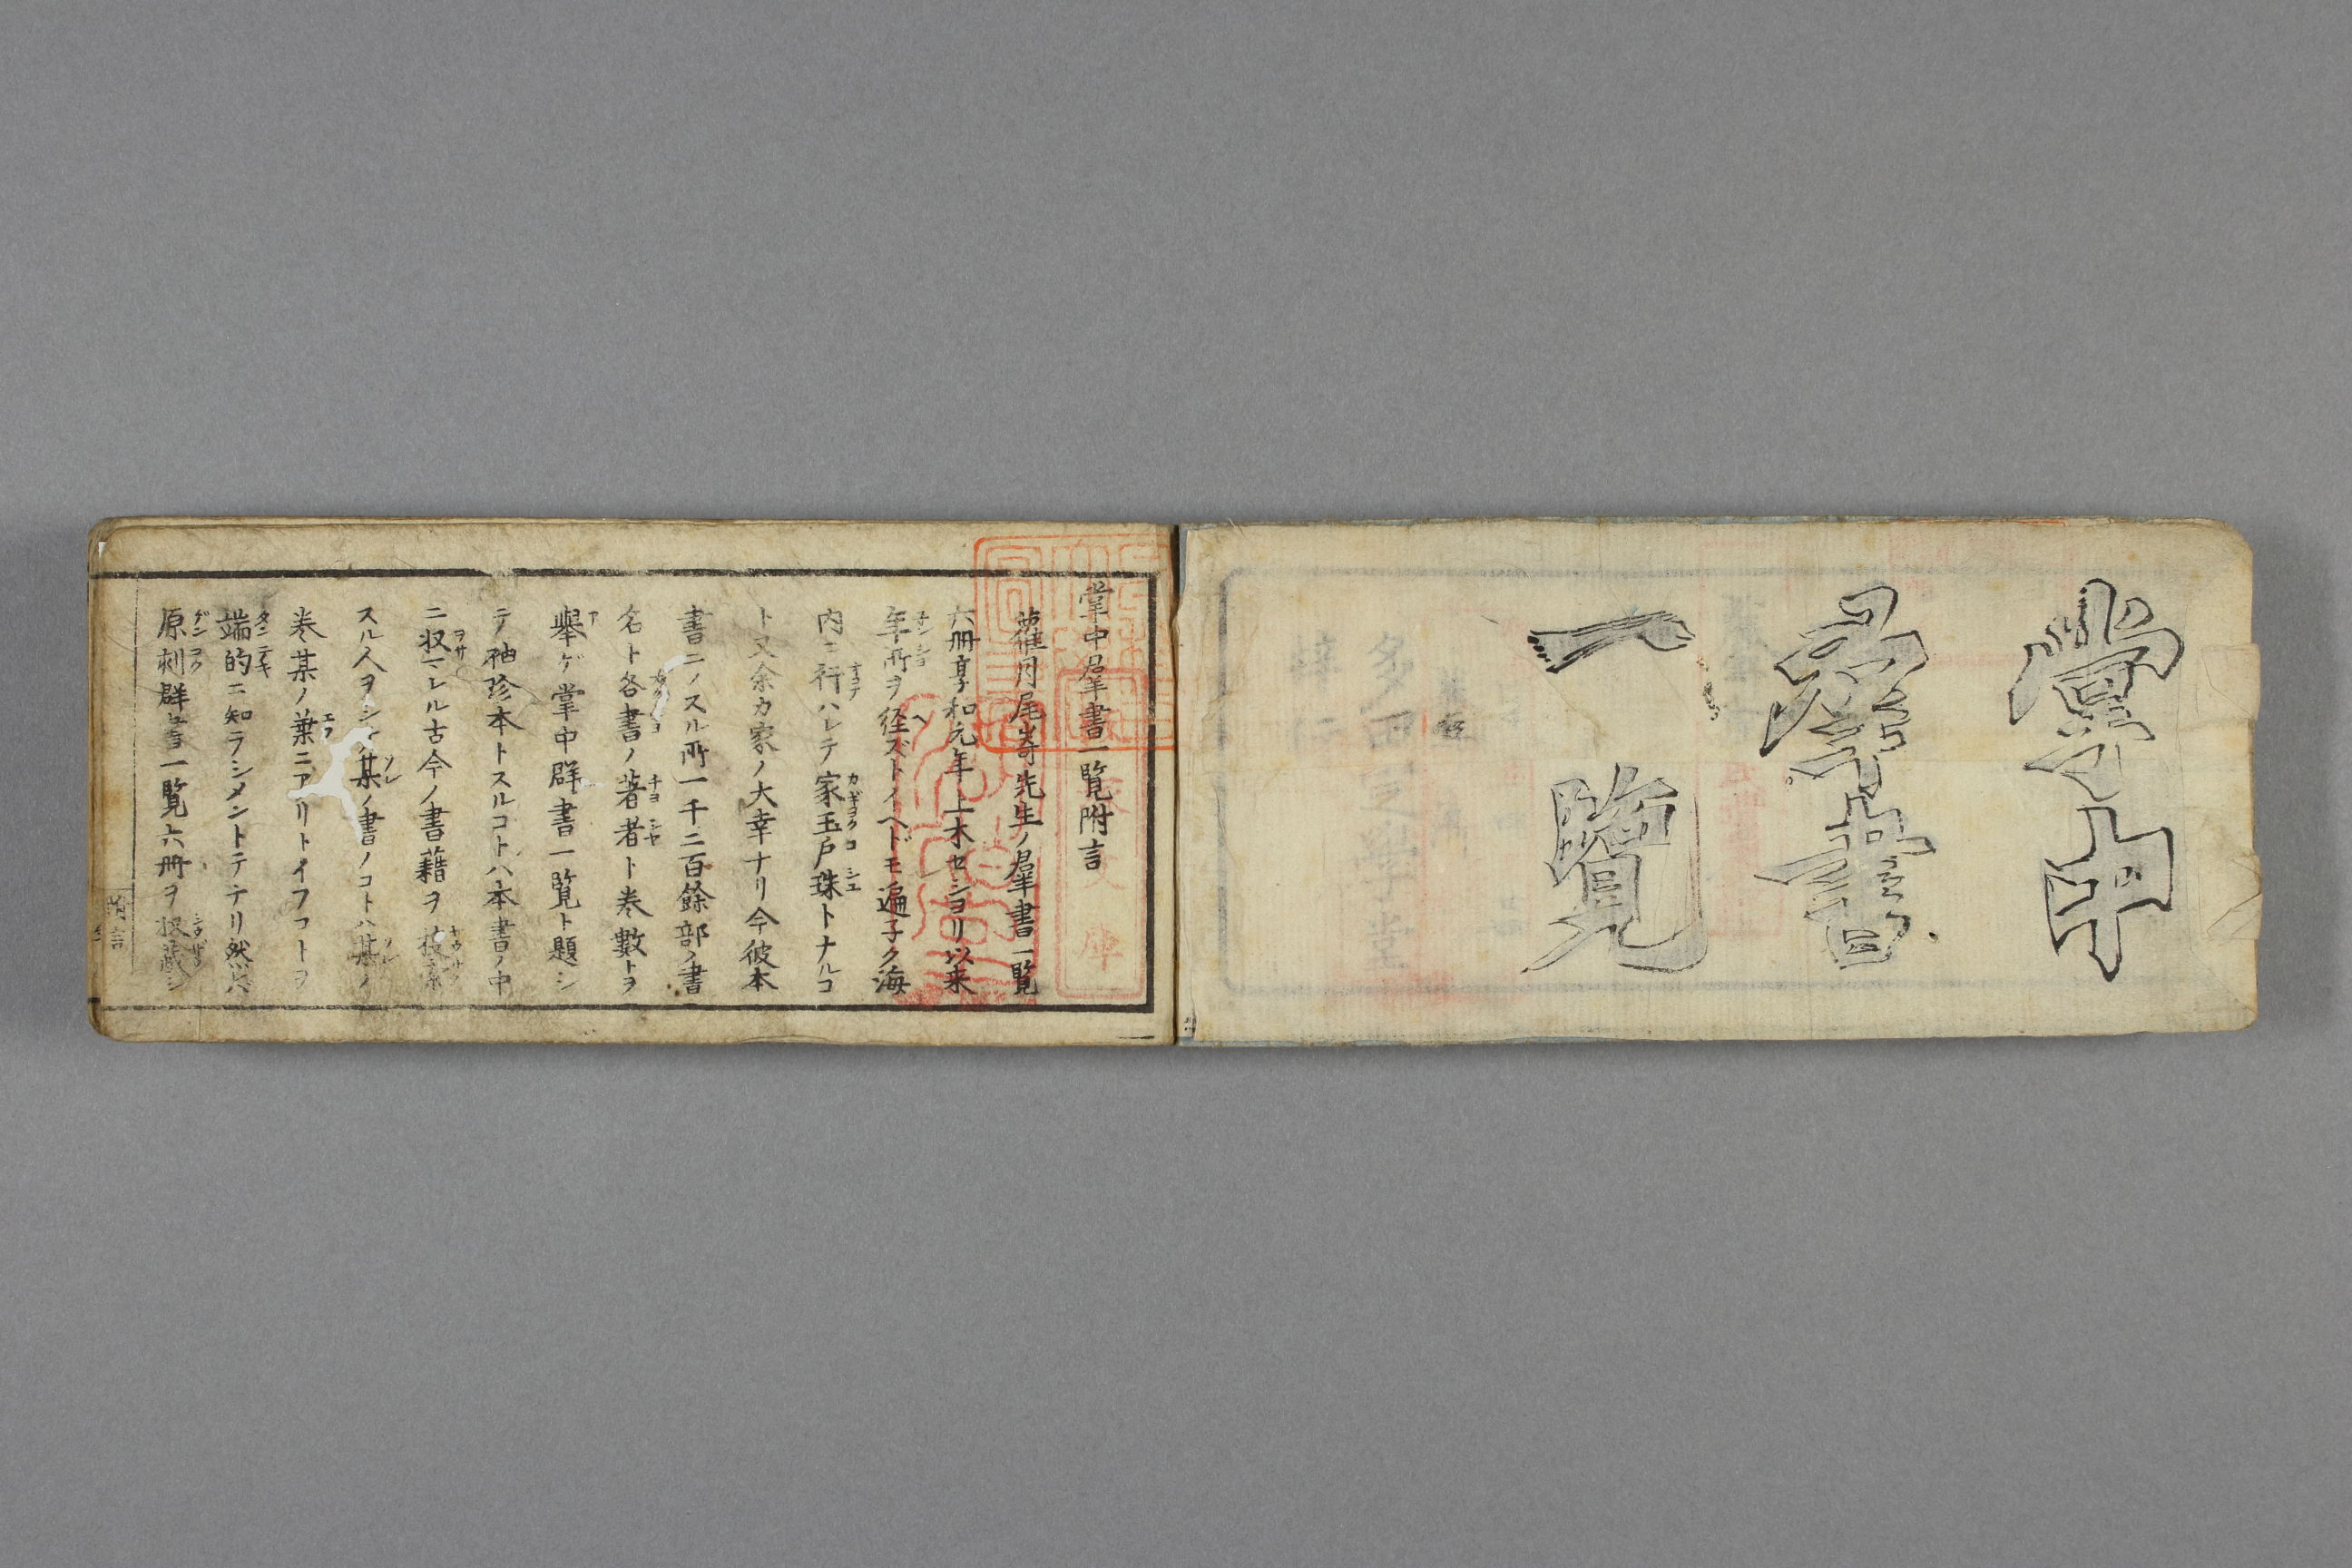 掌中
羣書
一覽
掌中羣書一覽附言
蘿月尾嵜先生ノ羣書一覽
六冊享和元年上木セシヨリ以来
年所ヲ径ズトイヘドモ遍子ク海
内ニ行ハレテ家玉戸珠トナルコ
ト又余カ家ノ大幸ナリ今彼本
書ニノスル所一千二百餘部ノ書
名ト各書ノ著者ト巻數トヲ
舉ゲ掌中群書一覧ト題シ
テ袖珍本トスルコトハ本書ノ中
ニ収マレル古今ノ書藉ヲ披索
スル人ヲシテ某ノ書ノコトハ某ノ
巻某ノ葉ニアリトイフコトヲ
端的ニ知ラシメントテナリ然レバ
原刻群書一覧六冊ヲ收蔵シ